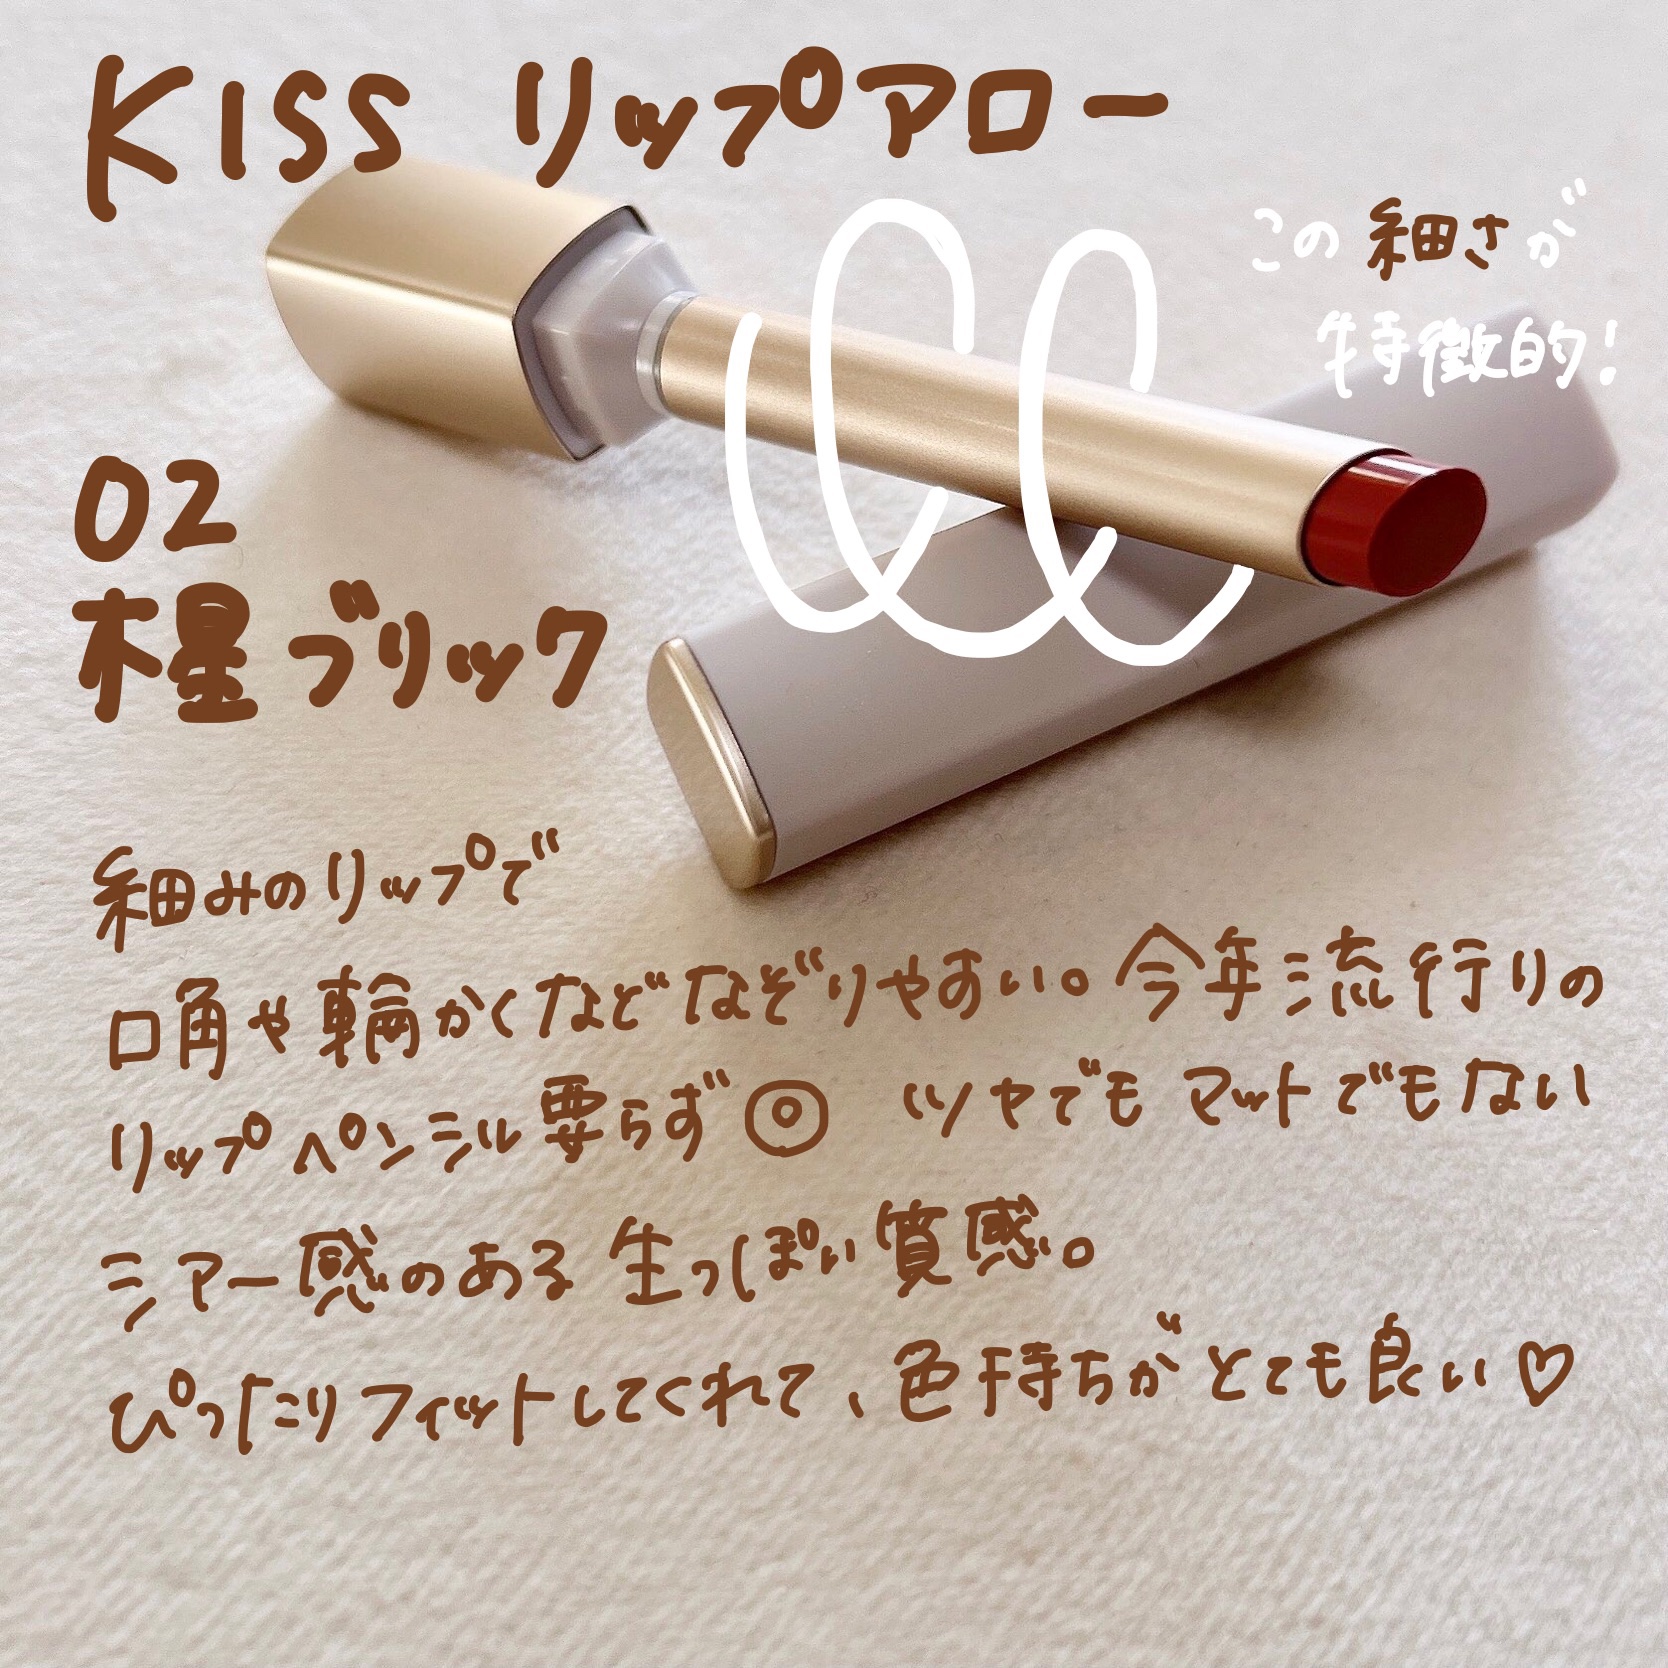 KISS リップアロー
この細さが
特徴的!
02
木星ブリック
細みのリップで
口角や輪かくなどなぞりやすい。今年流行りの
リップペンシル要らず◎ ツヤでもマットでもない
シアー感のある生っぽい質感。
ぴったりフィットしてくれて、色持ちがとても良い♡